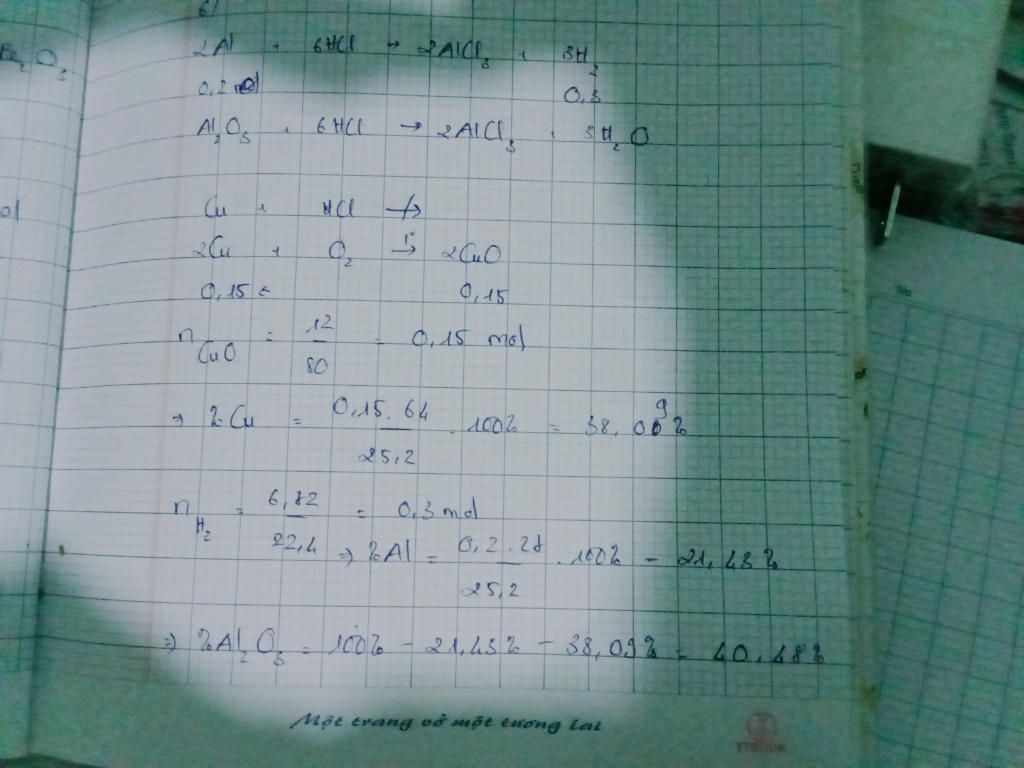 6/
2Al + 6HCl → 2AlCl₃ + 3H₂
0,2 mol 0,3
Al₂O₃ + 6HCl → 2AlCl₃ + 3H₂O
Cu + HCl ↛
2Cu + O₂ →(t°) 2CuO
0,15 ← 0,15
n CuO = 12/80 = 0,15 mol
⇒ %Cu = (0,15.64)/25,2 . 100% = 38,09%
n H₂ = 6,72/22,4 = 0,3 mol
⇒ %Al = (0,2.27)/25,2 . 100% = 21,43%
⇒ %Al₂O₃ = 100% - 21,43% - 38,09% = 40,48%
Một trang vở một tương lai